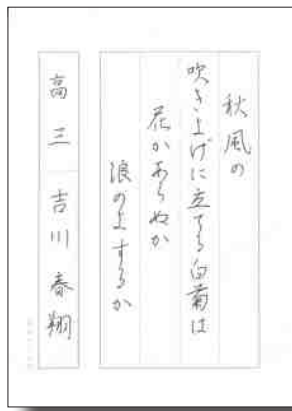 秋風の
吹き上げに立てる白菊は
花かあらぬか
浪のよするか
高三 吉川春翔